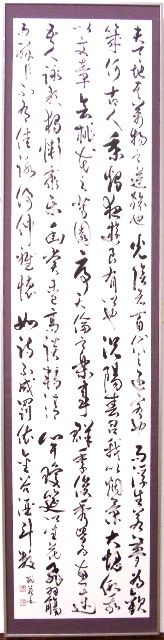 夫天地者萬物之逆旅也光陰者百代之過客而浮生若夢為歡
幾何古人秉燭夜遊良有以也況陽春召我以煙景大塊假我
以文章會桃李之芳園序天倫之樂事群季俊秀皆為惠連
吾人詠歌獨慚康樂幽賞未已高談轉清開瓊筵以坐花飛羽觴
而醉月不有佳詠何伸雅懷如詩不成罰依金谷酒斗數